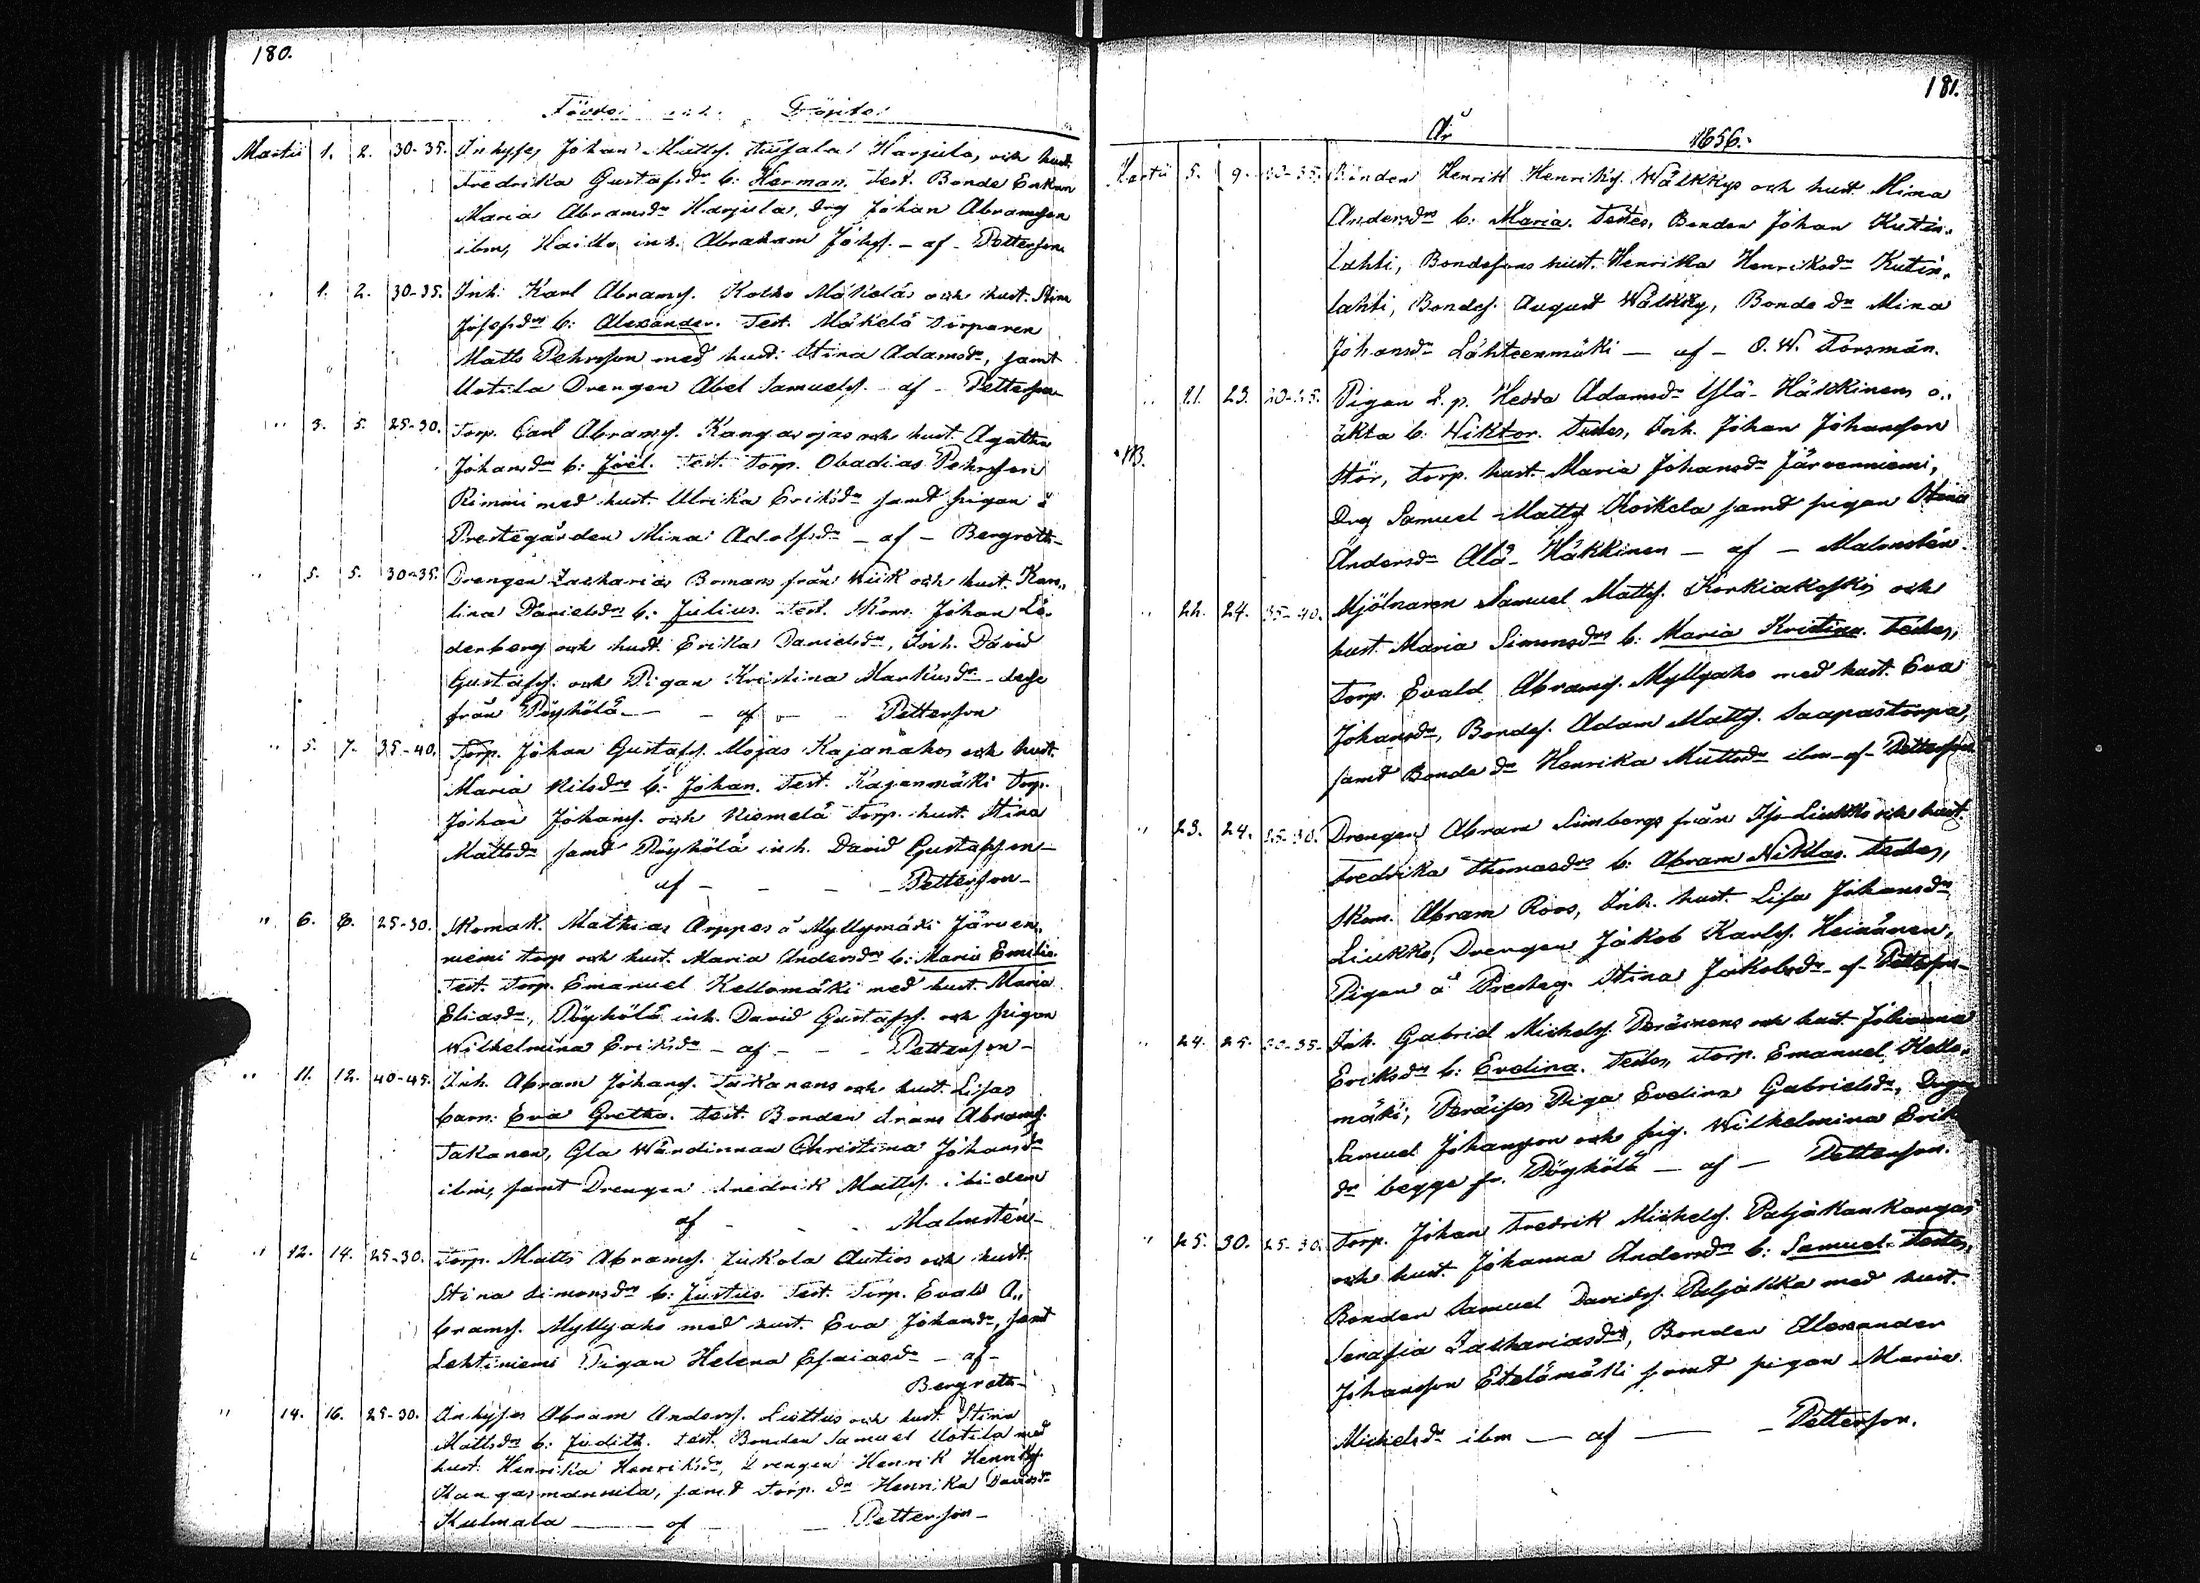 180.
Födde och Döpte
Martii 1. 2. 30-35. Inhyses Johan Matts. Harjula, och hust.
Fredrika Gustafsdrs b: Herman. Test. Bonde Enkan
Maria Abramsdr Harjula, drg Johan Abramsson
ibm, Haikko inh. Abraham Johss. - af - Pettersson
" 1. 2. 30-35. Inh. Karl Abramss. Kotko Mäkeläs och hust. Stina
Josefsdrs b: Alexander. Test. Mäkelä Torparen
Matts Pehrsson med hust. Stina Adamsdr, samt
Uotila Drengen Abel Samuelss. - af - Pettersson
" 3. 5. 25-30. Torp. Carl Abramss. Kangasojas och hust. Agatha
Johansdrs b: Joel. Test. Torp. Obadias Pehrsson
Rimmi med hust. Ulrika Eriksdr samt pigan å
Prestegården Mina Adolfsdr - af - Bergroth
" 5. 5. 30-35. Drengen Zacharias Bomans från Wiik och hust. Karo,,
lina Danielsdrs b: Julius. Test. Skom. Johan Lö,,
derberg och hust. Erika Danielsdr, Inh. David
Gustafss. och Pigan Kristina Markusdr - desse
från Pöyhölä - - af - - Pettersson
" 5. 7. 35-40. Torp. Johan Gustafss. Mojas Kajanahos och hust.
Maria Nilsdrs b: Johan. Test. Kajanmäki Torp.
Johan Johanss. och Niemelä Torp. hust. Stina
Mattsdr samt Pöyhölä inh. David Gustafsson
af - - - - Pettersson -
" 6. 8. 25-30. Skomak. Mathias Arppes å Myllymäki Järven,,
niemi torp och hust. Maria Andersdrs b: Maria Emilia.
Test. Torp. Emanuel Kellomäki med hust. Maria
Eliasdr, Pöyhölä inh. David Gustafss. och pigan
Wilhelmina Eriksdr - af - - - Pettersson -
" 11. 12. 40-45. Inh. Abram Johanss. Takanens och hust. Lisas
barn: Eva Gretha. Test. Bonden Frans Abramss.
Takanen, Gla Wärdinnan Christina Johansdr
ibm, samt Drengen Fredrik Mattss. ibidem
af - - - Malmstén -
" 12. 14. 25-30. Torp. Matts Abramss. Jukola Autios och hust.
Stina Simonsdrs b: Justus. Test. Torp. Evald A,,
bramss. Myllyaho med hust. Eva Johansdr, samt
Lehtiniemi Pigan Helena Esaiasdr - af -
Bergroth -
" 14. 16. 25-30. Inhyses Abram Anderss. Luttus och hust. Stina
Mattsdrs b: Judith. Test. Bonden Samuel Uotila med
hust. Henrika Henriksdr, Drengen Henrik Henrikss.
Kangasmannila, samt Torp. dr Henrika Davidsdr
Kulmala - af - - Pettersson -
181.
År 1856.
Martii 5. 9. 30-35. Bonden Henrik Henrikss. Wälkkys och hust. Mina
Andersdrs b: Maria. Testes, Bonden Johan Kutin,,
lahti, Bondesons hust. Henrika Henriksdr Kutin,,
lahti, Bondes. August Wälkky, Bonde dr Mina
Johansdr Lähteenmäki - af - O. W. Forsman.
" 21. 23. Pigan L. p. Hedda Adamsdr Ylä-Häkkinens o,,
äkta b: Wiktor. Testes, Inh. Johan Johansson
NB. Stör, Torp. hust. Maria Johansdr Järvenniemi,
Drg Samuel Mattss Koskela samt pigan Stina
Andersdr Alä-Häkkinen - af - Malmstén.
" 22. 24. 35-40. Mjölnaren Samuel Mattss. Korkiakoskis och
hust. Maria Simonsdrs b: Maria Kristina. Testes,
Torp. Evald Abramss. Myllyaho med hust. Eva
Johansdr, Bondes. Adam Mattss. Saapastorpa,
samt Bonde dr Henrika Mattsdr ibm - af - Pettersson
" 23. 24. 25-30. Drengen Abram Limbergs från Iso-Liukko och hust.
Fredrika Thomasdrs b: Abram Niklas. Testes,
Skom. Abram Roos, Inh. hust. Lisa Johansdr
Liukko, Drengen Jakob Karlss. Heinänen,
Pigan å Presteg. Stina Jakobsdr - af - Pettersson -
" 24. 25. 30-35. Inh. Gabriel Michelss. Peräinens och hust. Johanna
Eriksdrs b: Evelina. Testes, Torp. Emanuel Kello,,
mäki, Peräises Piga Evelina Gabrielsdr, Drgn
Samuel Johansson och pig. Wilhelmina Eriks
dr begge fr. Pöyhölä - af - Pettersson.
" 25. 30. 25-30. Torp. Johan Fredrik Michelss. Paljakankangas
och hust. Johanna Andersdrs b: Samuel. Testes,
Bonden Samuel Davidss. Paljakka med hust.
Serafia Zachariasdr, Bonden Alexander
Johansson Etelämäki samt pigan Maria
Michelsdr ibm - af - - Pettersson.